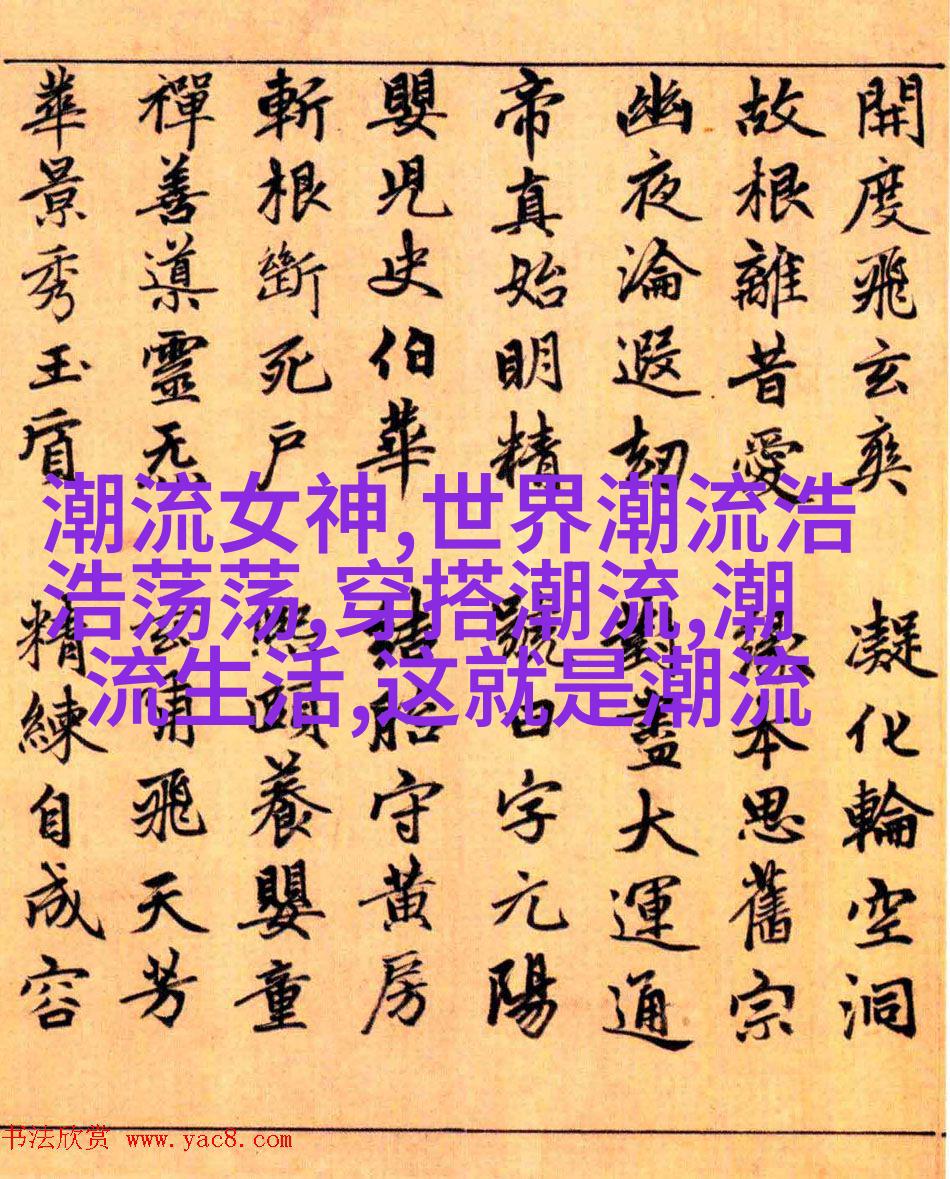 開度飛玄爽 凝化輪空洞
故根離昔愛 本思舊宗
幽夜淪遐劫 對蓋大運通
帝真始明精 號曰字元陽
嬰兒史伯華 結胎守黃房
斬根斷死戶 頤養嬰童
禪善導靈炁 玄哺飛天芳
華景秀玉 精練自成容
潮流女神,世界潮流浩
浩荡荡,穿搭潮流,潮
流生活,这就是潮流
书法欣赏 www.yac8.com